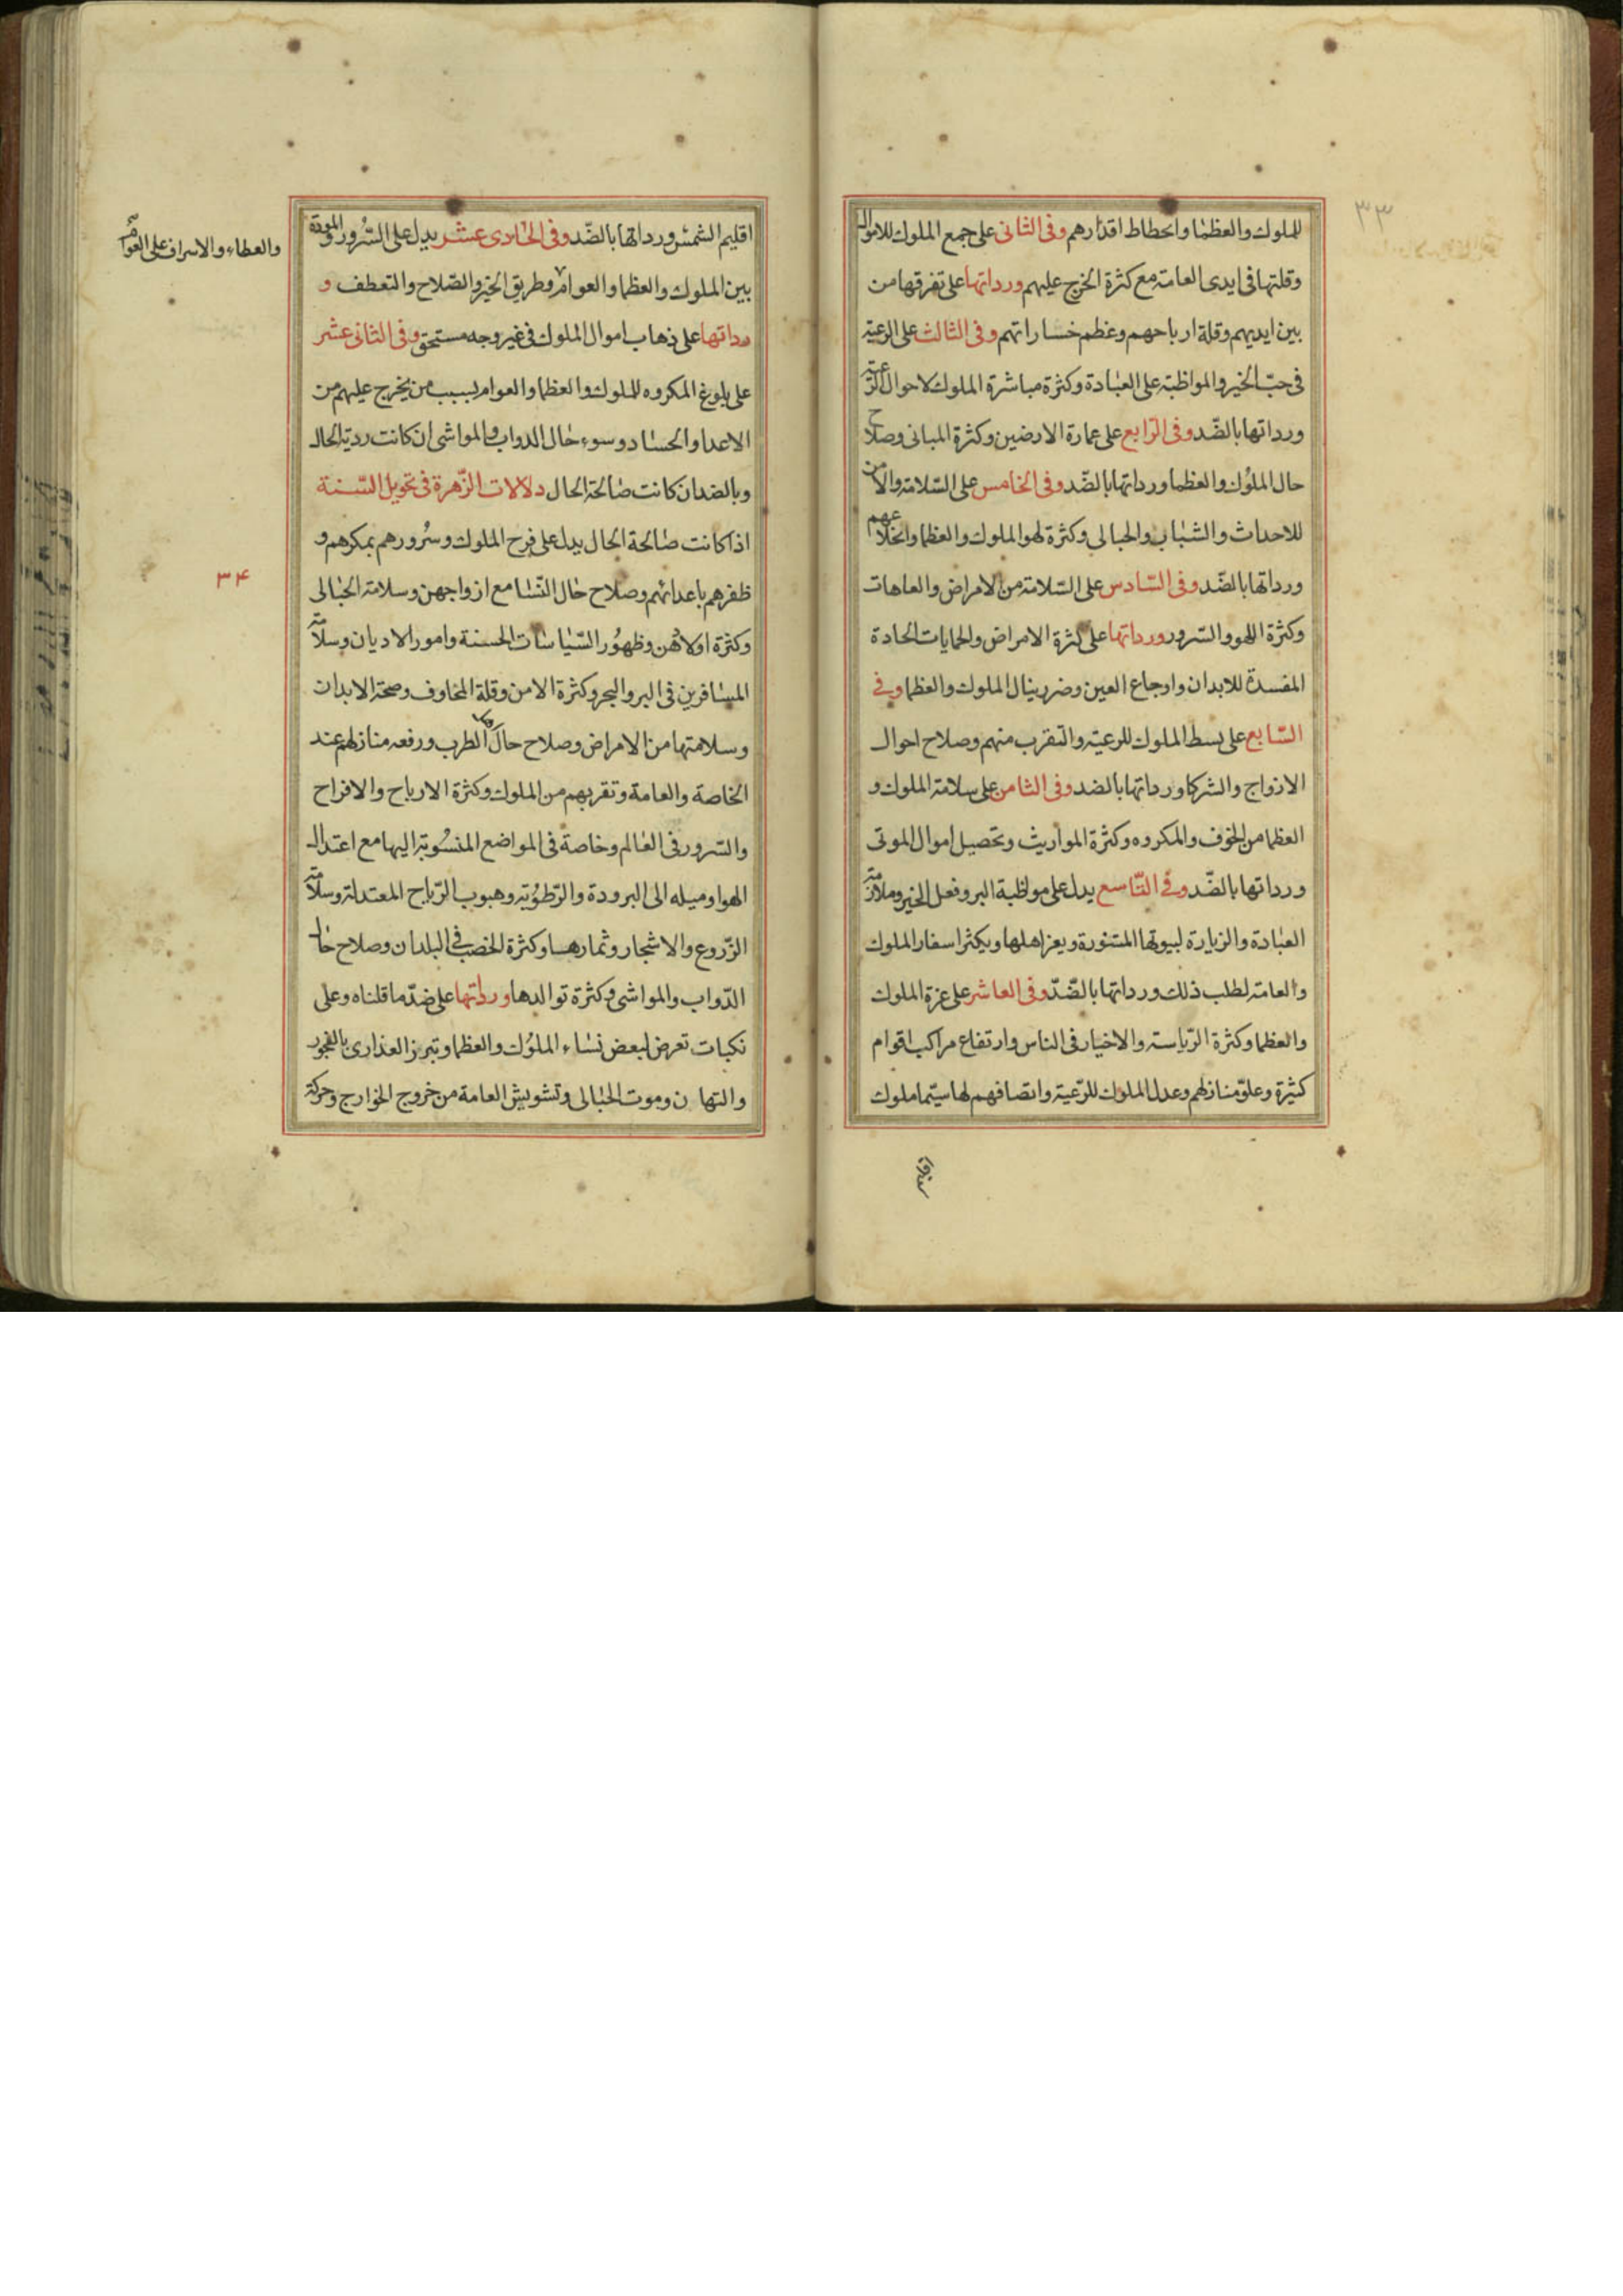 ٣٣
للملوك والعظما وانحطاط اقدارهم وفى الثانى على جمع الملوك للاموال
وقلتها فى ايدى العامة مع كثرة الخرج عليهم ورداتها على تفرقها من
بين ايديهم وقلة ارباحهم وعظم خساراتهم وفى الثالث على الرعية
فى حبّ الخير والمواظبة على العبادة وكثرة مباشرة الملوك لاحوال الرّعية
ورداتها بالضّد وفى الرّابع على عمارة الارضين وكثرة المبانى وصلاح
حال الملوُك والعظما ورداتها بالضّد وفى الخامس على السّلامة والامن
للاحداث والشباب والحبالى وكثرة لهو الملوك والعظما وانخلاعهم
ورداتها بالضّد وفى السّادس على السّلامة من الامراض والعاهات
وكثرة اللهو والسّرور ورداتها على كثرة الامراض والحمايات الحادة
المفسدة للابدان واوجاع العين وضرر ينال الملوك والعظما وفى
السّابع على بسط الملوك للرعيّة والتقرب منهم وصلاح احوال
الازواج والشركا ورداتها بالضد وفى الثامن على سلامة الملوك و
العظما من الخوف والمكروه وكثرة المواريث وتحصيل اموال الموتى
ورداتها بالضّد وفى التّاسع يدل على مواظبة البر وفعل الخير وملازمة
العبادة والزيارة لبيوتها المشهورة ويعز اهلها ويكثر اسفار الملوك
والعامة لطلب ذلك ورداتها بالضّدّ وفى العاشر على عزة الملوك
والعظما وكثرة الرّياسة والاخيار فى الناس وارتفاع مراكب اقوام
كثيرة وعلوّ منازلهم وعدل الملوك للرّعيّة وانصافهم لها سيّما ملوك
اقليم الشمس ورداتها بالضّد وفى الحادى عشر يدل على السُّرور والمودة
والعطاء والاسراف على العوام
بين الملوك والعظما والعوام وطريق الخير والصّلاح والتعطف و
رداتها على ذهاب اموال الملوك فى غير وجه مستحق وفى الثانى عشر
على بلوغ المكروه للملوك والعظما والعوام بسبب من يخرج عليهم من
الاعدا والحساد وسوء حال الدواب والمواشى ان كانت ردية الحال
وبالضد ان كانت صالحة الحال دلالات الزّهرة فى تحويل السّنة
اذا كانت صالحة الحال يدل على فرح الملوك وسُرورهم بمكرهم و
ظفرهم باعدائهم وصلاح حال النّسا مع ازواجهن وسلامة الحبالى
٣٤
وكثرة اولادهن وظهوُر السّياسات الحسنة وامور الاديان وسلامة
المسافرين فى البر والبحر وكثرة الامن وقلة المخاوف وصحة الابدان
وسلامتها من الامراض وصلاح حال الطرب ورفعه منازلهم عند
الخاصة والعامة وتقربهم من الملوك وكثرة الارباح والافراح
والسّرور فى العالم وخاصة فى المواضع المنسُوبة اليها مع اعتدال
الهوا وميله الى البرودة والرّطوُبة وهبوب الرّياح المعتدلة وسلامة
الزّروع والاشجار وثمارها وكثرة الخصب فى البلدان وصلاح حال
الدّواب والمواشى وكثرة توالدها ورداتها على ضدّ ما قلناه وعلى
نكبات تعرض لبعض نساء الملوُك والعظما وتبرز العذارى بالفجور
وموت الحبالى وتشويش العامة من خروج الخوارج وحركة